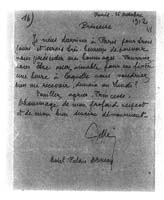 16)
Paris. 15 octobre
Princesse
Je suis de passage à Paris pour deux
jours et serais très heureux de pouvoir
vous présenter mes hommages. Pourriez
vous être assez aimable pour me fixer
une heure à laquelle vous voudriez
bien me recevoir demain ou Lundi?
Veuillez agréer, Princesse,
l'hommage de mon profond respect
et de mon bien sincère dévouement.
Hotel Palais d'Orsay